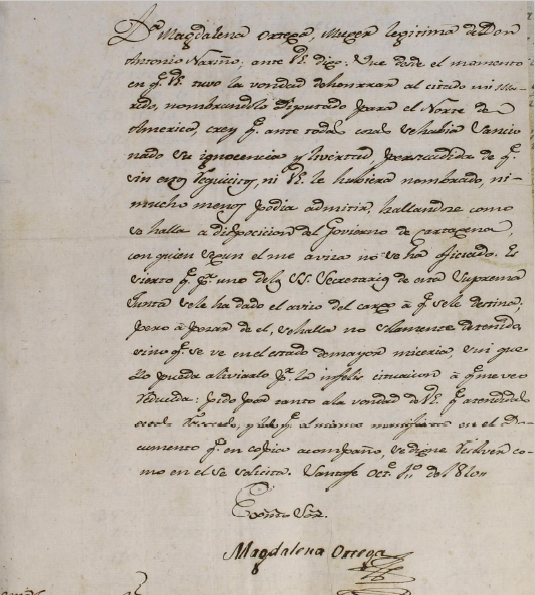 Dª Magdalena Ortega, Muger legitima de Don
Antonio Nariño; ante VE. digo: Que desde el momento
en q.e VE. tuvo la vondad de honrrar al citado mi Ma-
rido, nombrandolo Diputado para el Norte de
America, crey q.e ante todas cosas se habia Sancio
nado su ignocencia y livertad, persuadida de q.e
sin estos requicitos, ni VE. le hubiera nombrado, ni
mucho menos podia admitir, hallandose como
se halla a disposicion del Govierno de Cartagena,
con quien segun el me avisa no se ha oficiado. Es
cierto q.e p.r uno de los SS. Secretarios de esta Suprema
Junta se le ha dado el aviso del cargo à q.e se le destina;
pero à pesar de el, se halla no solamente detenido,
sino q.e se ve en el estado de mayor miseria, sin que
Yo pueda aliviarlo p.r la infeliz cituacion à q.e me veo
reducida: pido por tanto a la vondad de VE. q.e atendidas
q.e el mismo manifiesta en el Do-
cumento q.e en copia acompaño, se digne resolver co-
mo en el se solicita. Santafe Oct.e de 1810
Exmo Sor.
Magdalena Ortega